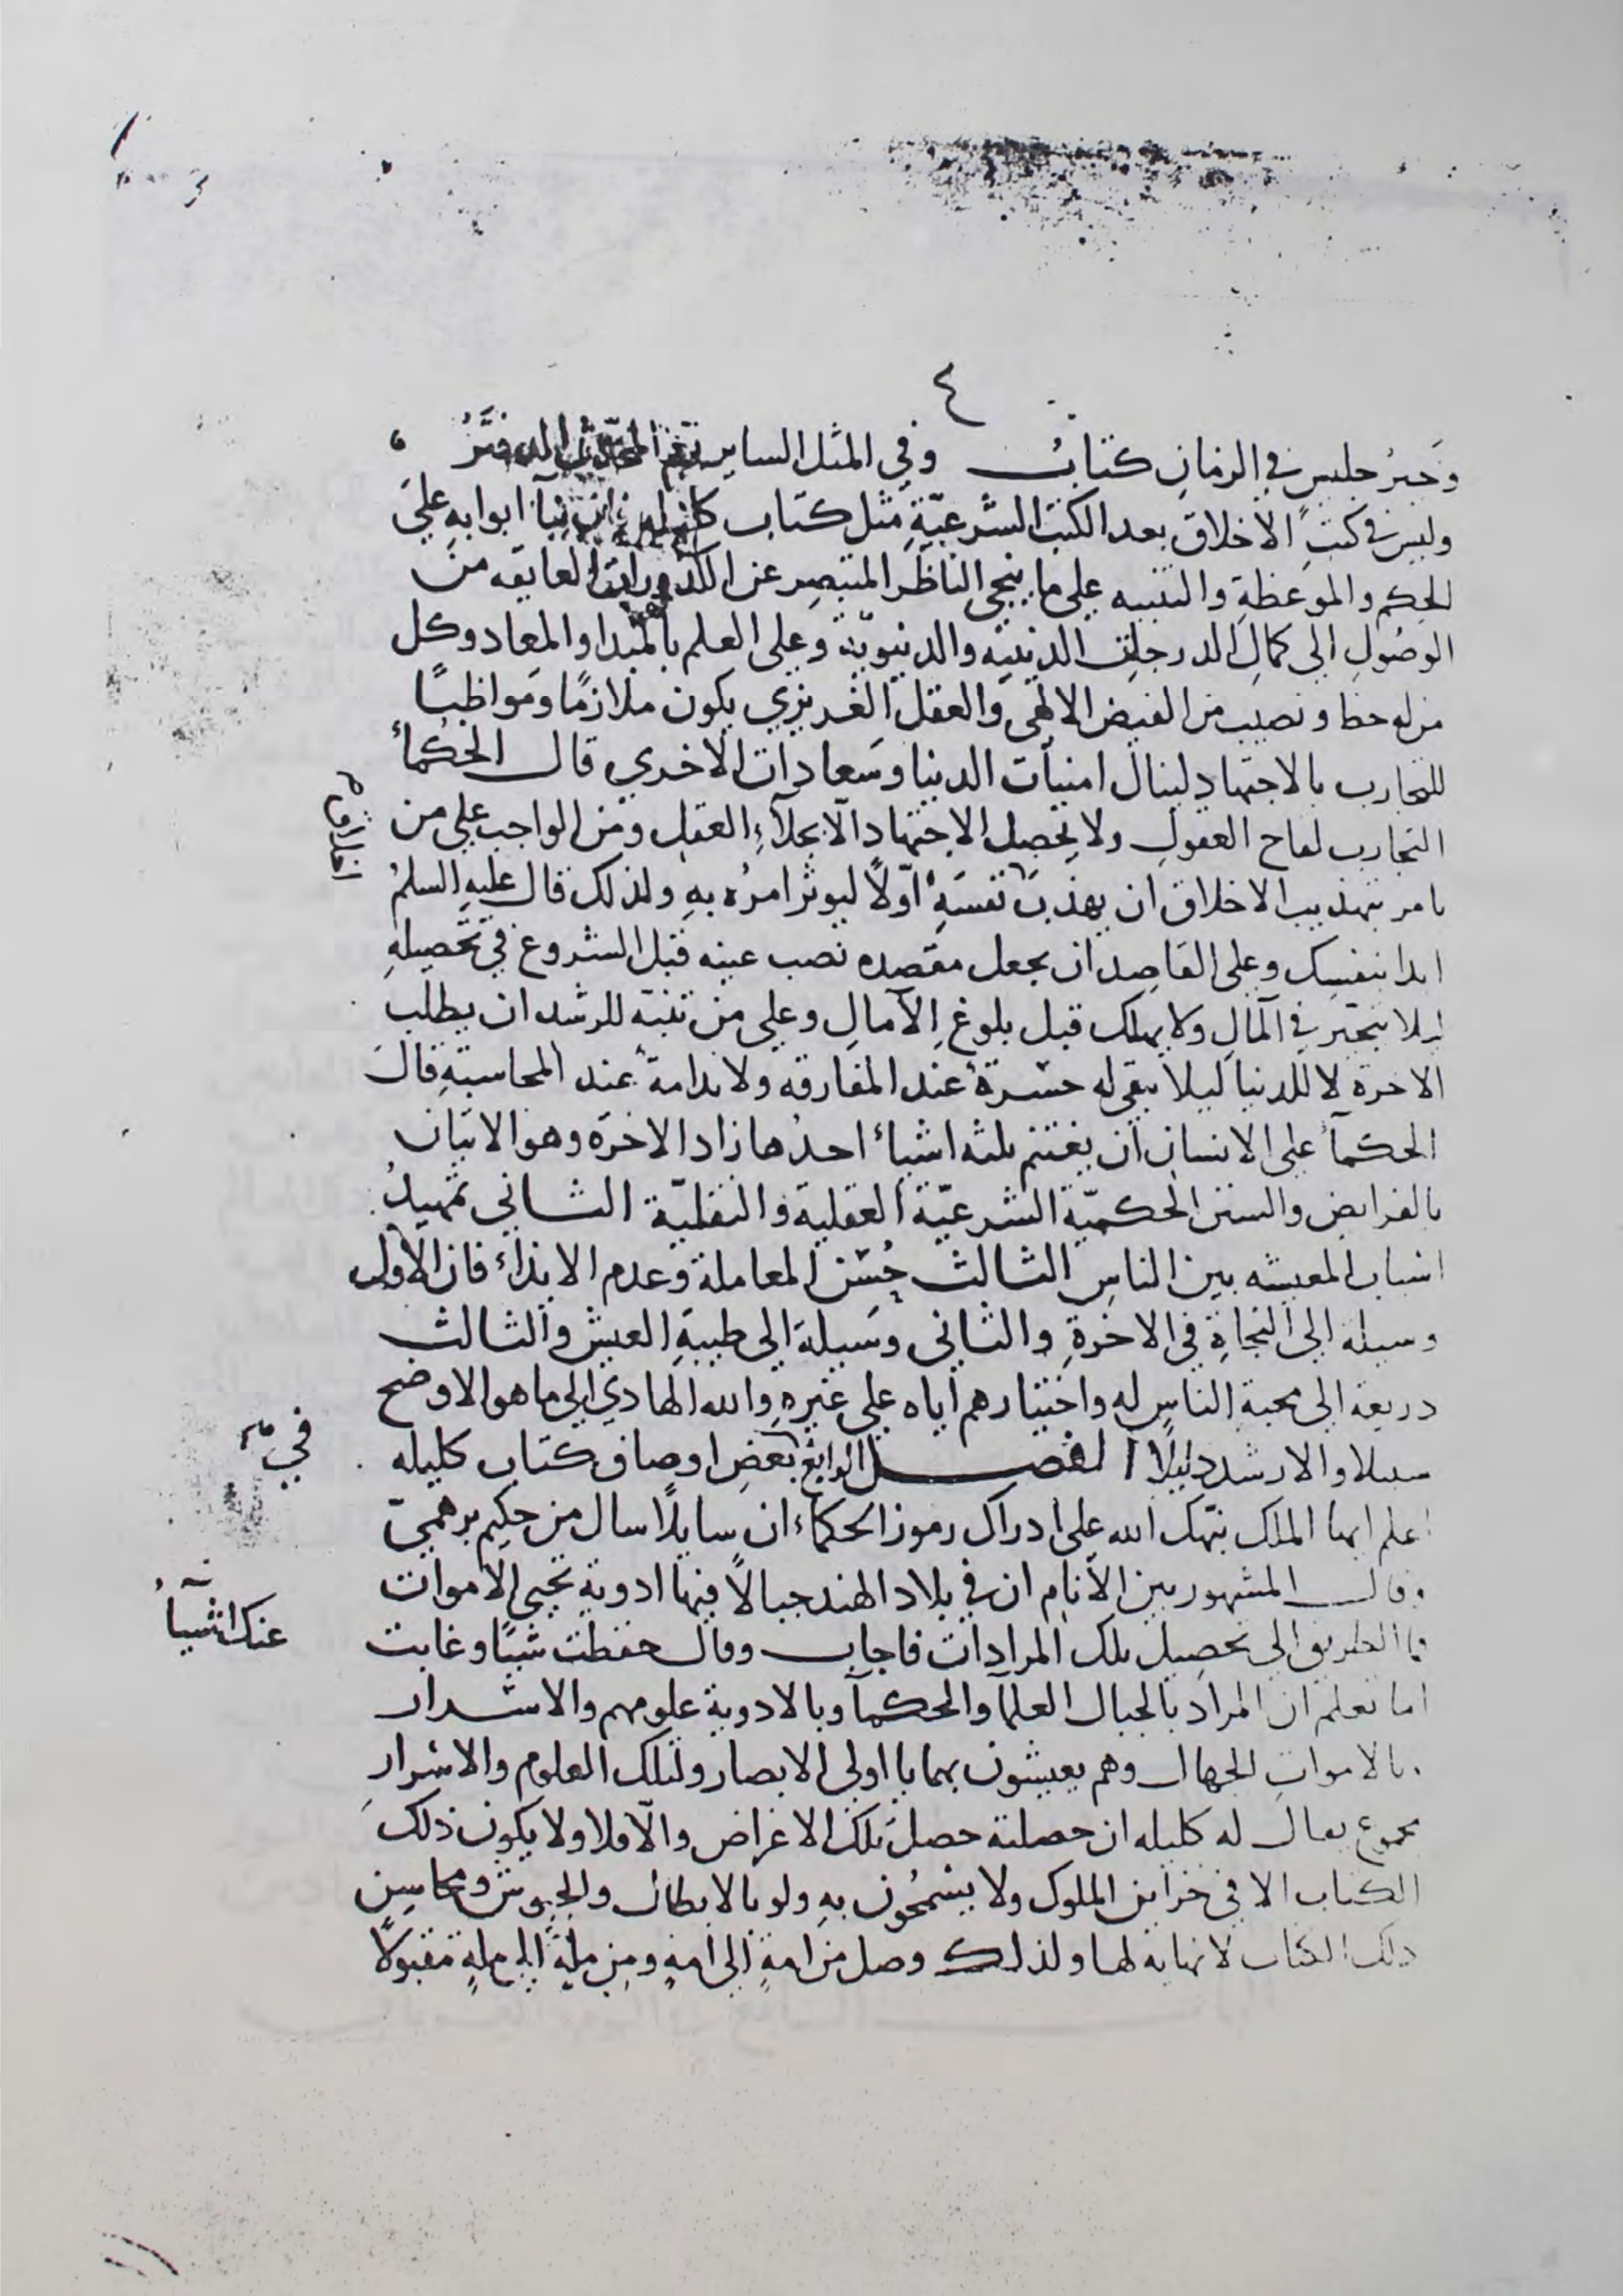 ٤
وخير جليس في الزمان كتاب وفي المثل الساير نعم المحدث الدفتر
وليس في كتب الاخلاق بعد الكتب الشرعيّة مثل كتاب ابوابه علي
الحكم والموعظة والتنبيه علي ما ينجي الناظر المتبصر عن الكدورات العايقه من
الوصول الي كمال الدرجات الدينيه والدنيويّة وعلي العلم بالمبدا والمعاد وكل
من له حظ و نصيب من الفيض الالهي والعقل الغريزي يكون ملازمًا ومواظبًا
للتجارب بالاجتهاد لينال امنيات الدنيا وسعادات الاخري قال الحكماء
التجارب لقاح العقول ولا يحصل الاجتهاد الّا بجلآء العقل ومن الواجب علي من
يامر بتهذيب الاخلاق ان يهذب نفسه اوّلًا ليوثر امره به ولذلك قال عليه السلم
ابدا بنفسك وعلي القاصد ان يجعل مقصده نصب عينه قبل الشروع في تحصيله
ليلا يتحير في المآل ولا يهلك قبل بلوغ الآمال وعلي من تنبه للرشد ان يطلب
الاخرة لا للدنيا ليلا يبقي له حسرة عند المفارقه ولا ندامة عند المحاسبة قال
الحكمآء علي الانسان ان يغتنم ثلثه اشياء احدها زاد الاخرة وهو الاتيان
بالفرايض والسنن الحكميّة الشرعيّة العقلية والنقليّة الثاني تمهيد
اسباب المعيشه بين الناس الثالث حُسْن المعاملة وعدم الايذاء فان الاول
وسيله الي النجاة في الاخرة والثاني وسيلة الي طيبة العيش والثالث
دريعة الي محبة الناس له واختيارهم اياه علي غيره والله الهادي الي ما هو الاوضح
سبيلا والارشد دليلًا الفصل الرابع بعض اوصاف كتاب كليله
في
اعلم ايها الملك نبّهك الله علي ادراك رموز الحكماء ان سايلًا سال من حكيم برهميّ
وقال المشهور بين الانام ان في بلاد الهند جبالًا فيها ادوية تحيي الاموات
فما الطريق الي تحصيل تلك المرادات فاجاب وقال حفظت شيئًا وغابت
عنك اشيآء
اما تعلم ان المراد بالجبال العلمآ والحكمآ وبالادوية علومهم والاسرار
وبالاموات الجهال وهم يعيشون بهما يا اولي الابصار ولتلك العلوم والاسرار
مجموع يقال له كليله ان حصلته حصل تلك الاغراض والّا فلا ولا يكون ذلك
الكتاب الا في خزاين الملوك ولا يسمحون به ولو بالابطال والجيوش ومحاسن
ذلك الكتاب لا نهاية لها ولذلك وصل من امة الي امة ومن ملة الي ملة مقبولًا